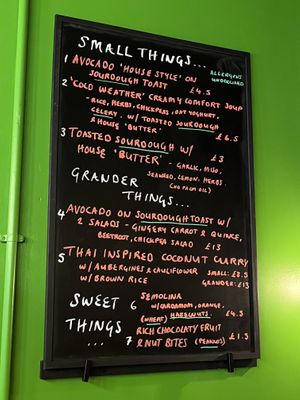 SMALL THINGS...
ALLERGENS
UNDERLINED
1 AVOCADO 'HOUSE STYLE' ON
SOURDOUGH TOAST £4.5
2 'COLD WEATHER' CREAMY COMFORT SOUP
- RICE, HERBS, CHICKPEAS, OAT YOGHURT,
CELERY. W/ TOASTED SOURDOUGH
& HOUSE 'BUTTER' £6.5
3 TOASTED SOURDOUGH W/ £3
HOUSE 'BUTTER' - GARLIC, MISO,
SEAWEED, LEMON, HERBS.
(NO PALM OIL)
GRANDER
THINGS...
4 AVOCADO ON SOURDOUGH TOAST W/
2 SALADS - GINGERY CARROT & QUINCE,
BEETROOT, CHICKPEA SALAD £13
5 THAI INSPIRED COCONUT CURRY
W/ AUBERGINES & CAULIFLOWER SMALL: £8.5
W/ BROWN RICE GRANDER: £13
SWEET 6 SEMOLINA
W/ CARDAMOM, ORANGE,
(WHEAT) HAZELNUTS £4.5
THINGS RICH CHOCOLATY FRUIT
... 7 & NUT BITES (PEANUTS) £1.5